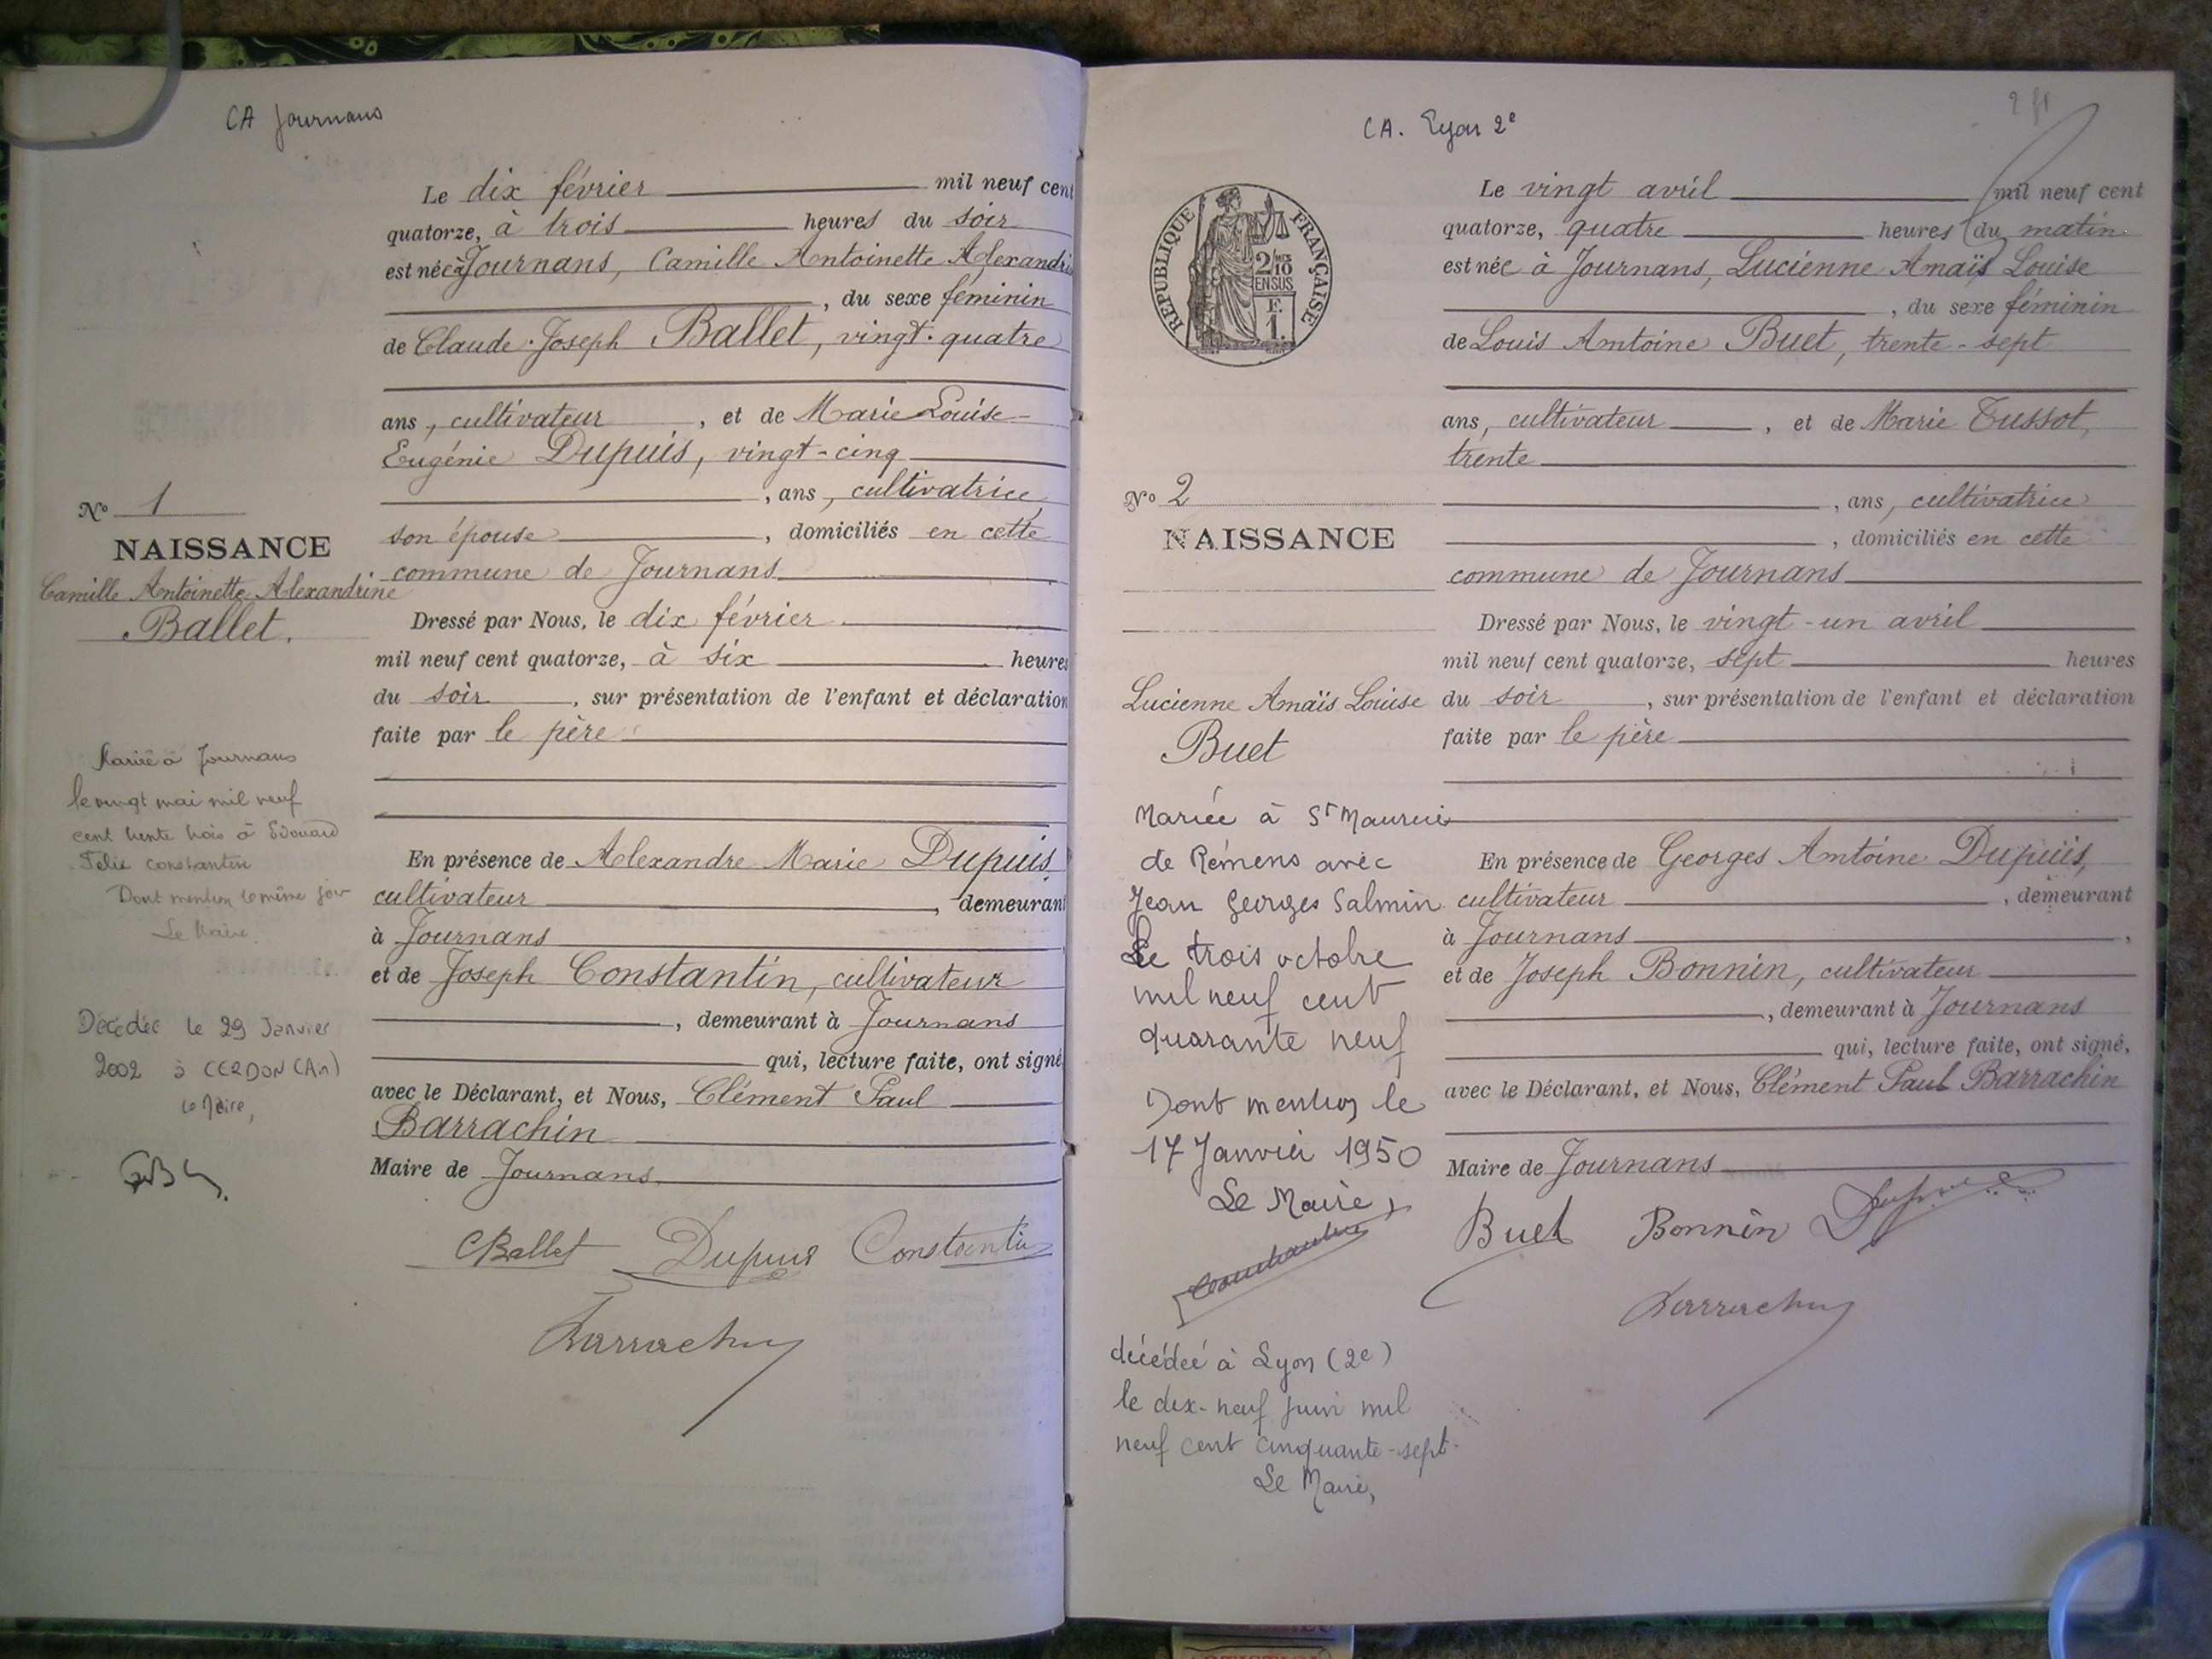 CA Journans
Le dix février mil neuf cent
quatorze, à trois heures du soir
est née à Journans, Camille Antoinette Alexandrine
, du sexe féminin
de Claude Joseph Ballet, vingt-quatre
ans, cultivateur, et de Marie Louise
Eugénie Dupuis, vingt-cinq
, ans, cultivatrice,
son épouse, domiciliés en cette
commune de Journans
Dressé par Nous, le dix février
mil neuf cent quatorze, à six heures
du soir, sur présentation de l'enfant et déclaration
faite par le père
En présence de Alexandre Marie Dupuis,
cultivateur, demeurant
à Journans
et de Joseph Constantin, cultivateur
, demeurant à Journans
qui, lecture faite, ont signé
avec le Déclarant, et Nous, Clément Paul
Barrachin
Maire de Journans
CBallet Dupuis Constantin
Barrachin
No 1
NAISSANCE
Camille Antoinette Alexandrine
Ballet.
Mariée à Journans
le vingt mai mil neuf
cent trente trois à Edouard
Felix Constantin
Dont mention le même jour
Le Maire
Décédée le 29 Janvier
2002 à CERDON (Ain)
le Maire,
CA. Lyon 2e
2 f1
RÉPUBLIQUE FRANÇAISE
2/10
EN SUS
F.
1.
Le vingt avril mil neuf cent
quatorze, quatre heures du matin
est née à Journans, Lucienne Anaïs Louise
, du sexe féminin
de Louis Antoine Buet, trente-sept
ans, cultivateur, et de Marie Tussot,
trente
, ans, cultivatrice
, domiciliés en cette
commune de Journans
Dressé par Nous, le vingt-un avril
mil neuf cent quatorze, sept heures
du soir, sur présentation de l'enfant et déclaration
faite par le père
En présence de Georges Antoine Dupuis,
cultivateur, demeurant
à Journans,
et de Joseph Bonnin, cultivateur
, demeurant à Journans
qui, lecture faite, ont signé,
avec le Déclarant, et Nous, Clément Paul Barrachin
Maire de Journans
Buet Bonnin Dupuis
Barrachin
No 2
NAISSANCE
Lucienne Anaïs Louise
Buet
Mariée à St Maurice
de Rémens avec
Jean Georges Salmin
Le trois octobre
mil neuf cent
quarante neuf
Dont mention le
17 Janvier 1950
Le Maire,
Constantin
décédée à Lyon (2e)
le dix-neuf juin mil
neuf cent cinquante-sept.
Le Maire,